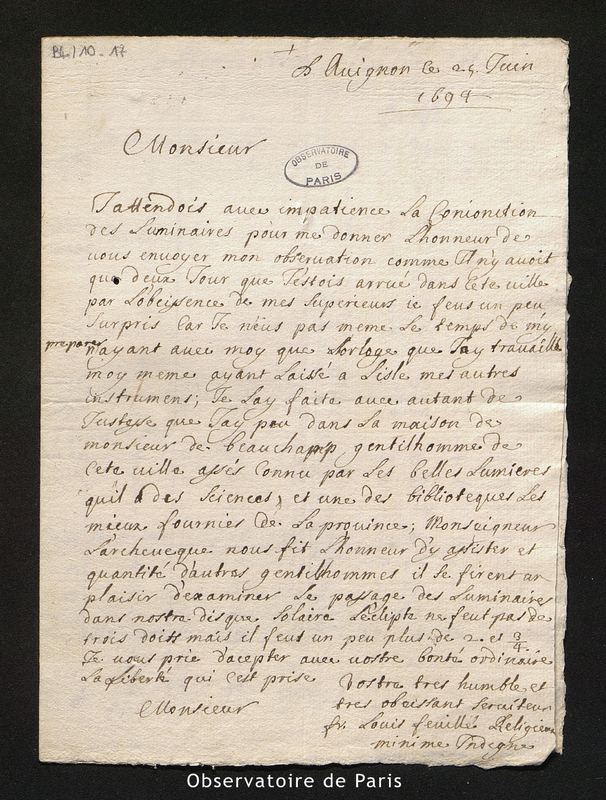 B4/10-17
d'Auignon le 25 Juin
1694
Monsieur
OBSERVATOIRE
DE
PARIS
J'attendois auec impatience La Conionction
des Luminaires pour me donner L'honneur de
vous enuoyer mon obseruation comme Il ny auoit
que deux Jour que J'estois arriué dans Cete ville
par L'obeissence de mes Superieurs ie feus un peu
Surpris Car Je neüs pas meme Le temps de m'y
preparer
n'ayant auec moy que Lorloge que J'ay trauaillé
moy meme ayant Laissé a Lisle mes autres
instrumens; Je Lay faite auec autant de
Justesse que J'ay peu dans La maison de
monsieur de beauchamp gentilhomme de
Cete uille assés Connu par Les belles Lumieres
quil a des Sciences, et une des biblioteques Les
mieux fournies de La prouince; Monseigneur
L'archeueque nous fit L'honneur d'y assister et
quantité d'autres gentilhommes il se firent un
plaisir d'examiner Le passage des Luminaires
dans nostre disque Solaire L'eclipte ne feut pas de
trois doits mais il feut un peu plus de 2 et 3/4.
Je vous prie d'acepter auec vostre bonté ordinaire
La Liberté qui C'est prise
Vostre tres humble et
tres obeissant seruiteur
Monsieur
fr. Louis feuillé Religieux
minime Indegne
Observatoire de Paris